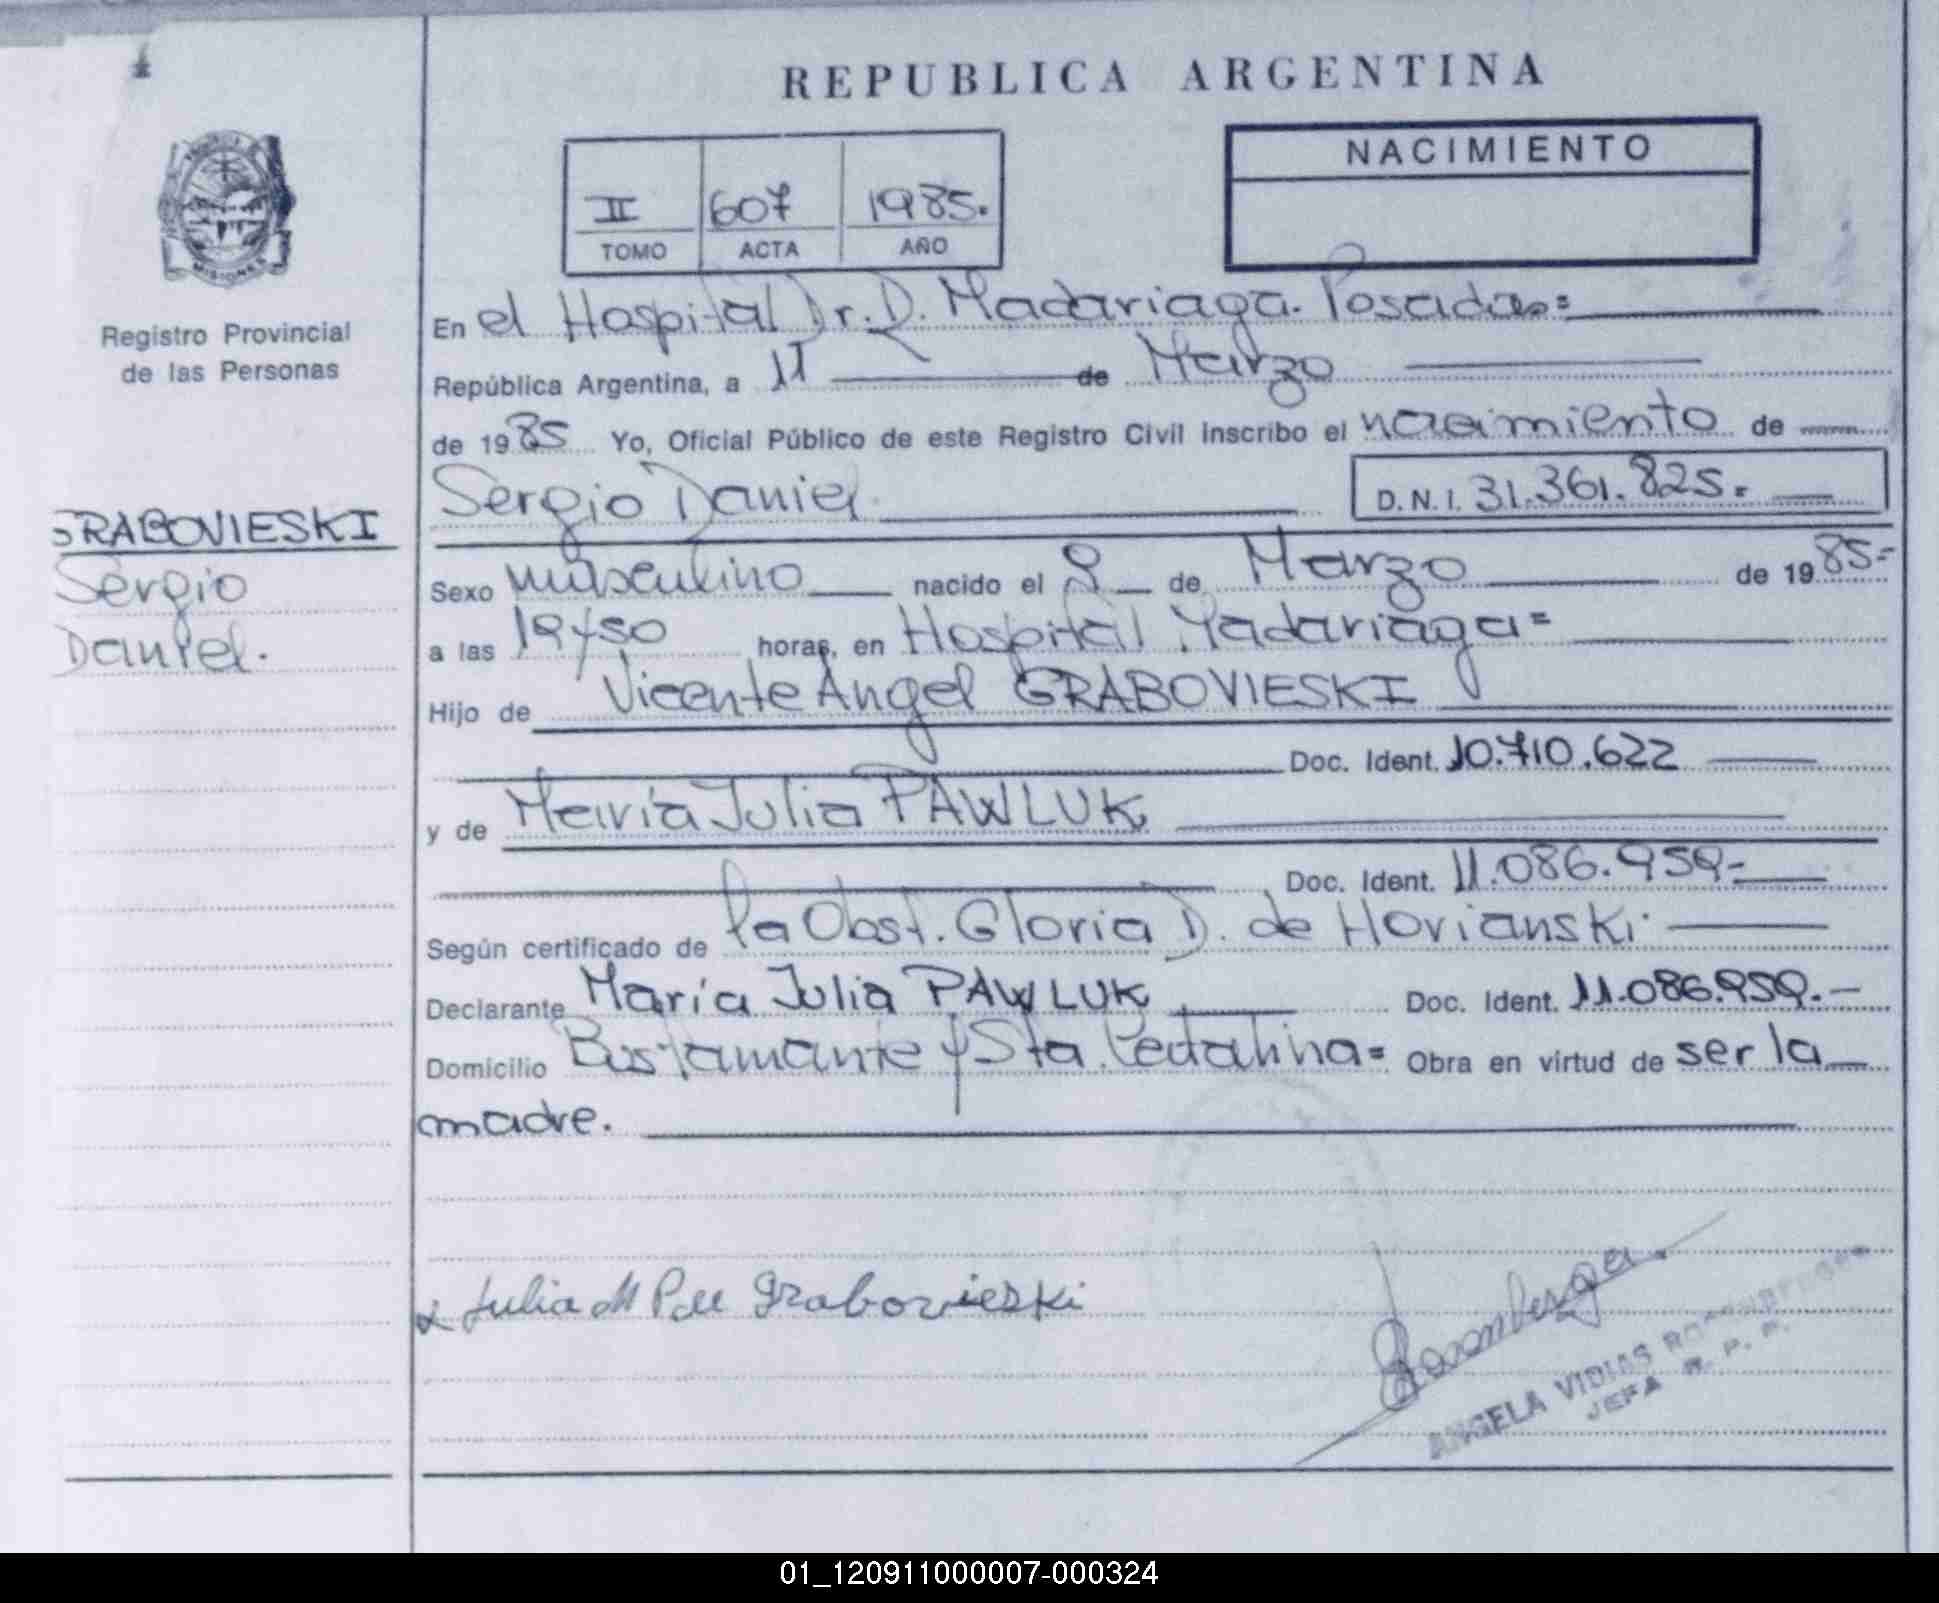 REPUBLICA ARGENTINA
NACIMIENTO
II 607 1985.
TOMO ACTA AÑO
PROVINCIA DE
MISIONES
Registro Provincial
de las Personas
GRABOVIESKI
Sergio
Daniel.
En el Hospital Dr. R. Madariaga. Posadas=
República Argentina, a 11 de Marzo
de 1985 Yo, Oficial Público de este Registro Civil inscribo el nacimiento de
Sergio Daniel D.N.I. 31.361.825.
Sexo masculino nacido el 9 de Marzo de 1985=
a las 19y50 horas, en Hospital Madariaga=
Hijo de Vicente Angel GRABOVIESKI
Doc. Ident. 10.710.622
y de María Julia PAWLUK
Doc. Ident. 11.086.959-
Según certificado de la Obst. Gloria D. de Horianski.
Declarante María Julia PAWLUK Doc. Ident. 11.086.959.-
Domicilio Bustamante y Sta. Catalina= Obra en virtud de ser la
madre.
Julia M P de Grabovieski
ANGELA VIDIAS
JEFA R. P. P.
01_120911000007-000324